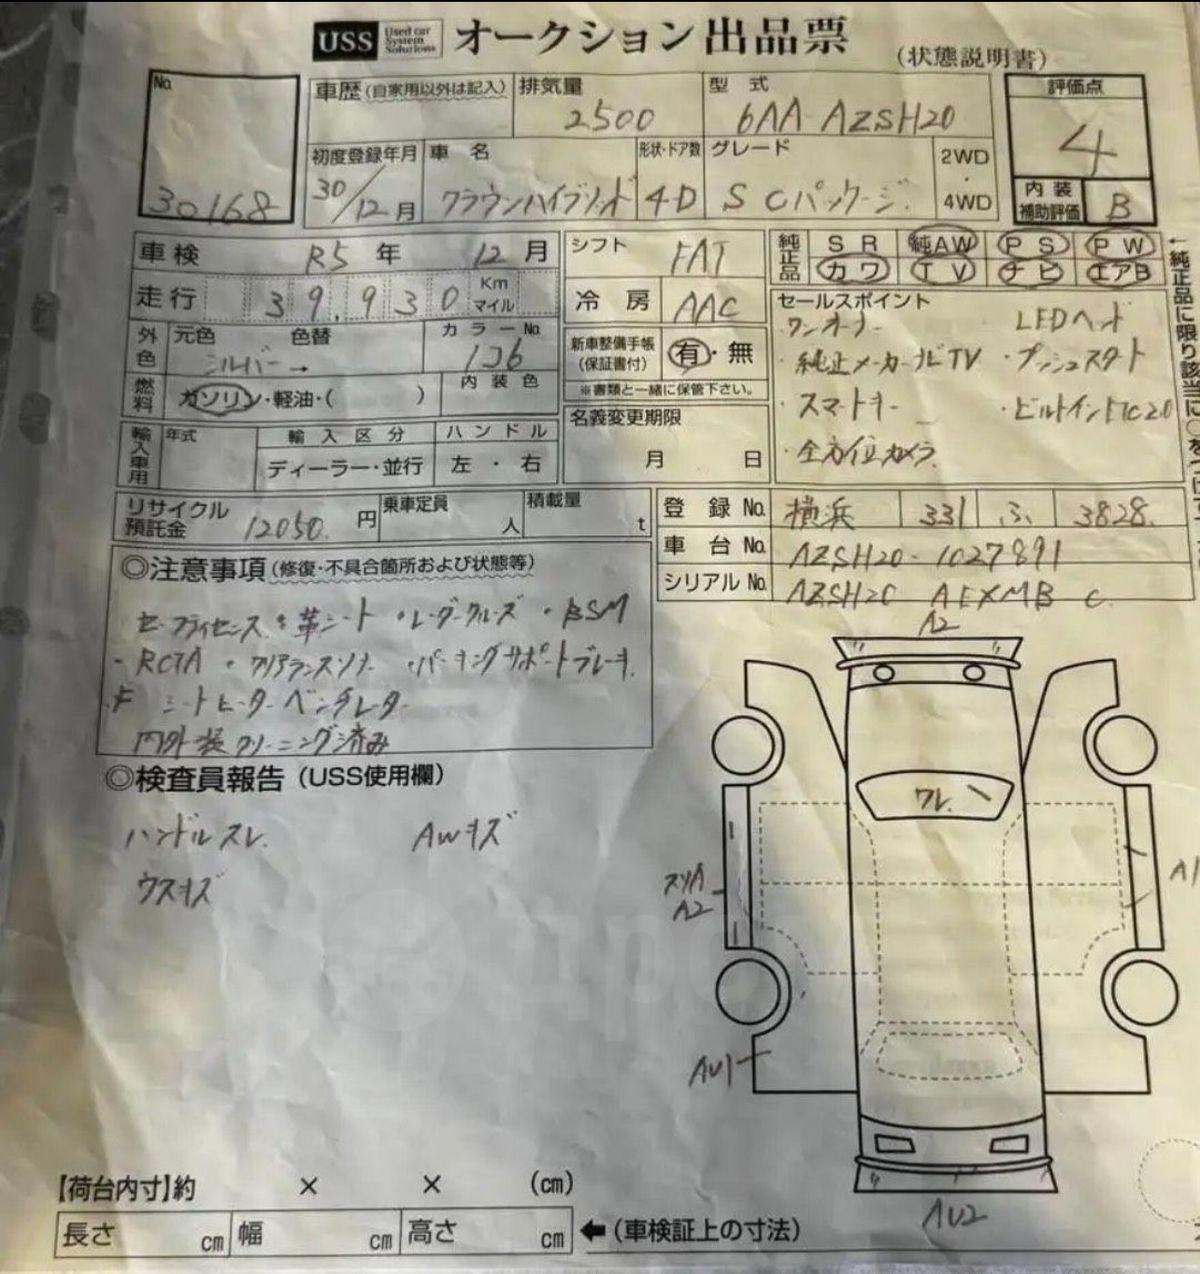 USS Used car System Solutions オークション出品票 (状態説明書)
No. 30168
車歴(自家用以外は記入)
排気量 2500
型式 6AA-AZSH20
評価点 4
初度登録年月 30/12月
車名 クラウンハイブリッド
形状・ドア数 4D
グレード S Cパッケージ
2WD・4WD
内装補助評価 B
車検 R5年 12月
走行 39,930 Km マイル
外色 元色 シルバー→ 色替
カラーNo. 1J6
燃料 ガソリン・軽油・( )
内装色
輸入車用 年式
輸入区分 ディーラー・並行
ハンドル 左・右
シフト FAT
冷房 AAC
新車整備手帳(保証書付) 有・無
※書類と一緒に保管下さい。
名義変更期限 月 日
純正品 SR 純AW PS PW
カワ TV ナビ エアB
←純正品に限り該当に○を
セールスポイント
・ワンオーナー LEDヘッド
・純正メーカーナビTV ・プッシュスタート
・スマートキー ・ビルトインETC2.0
・全方位カメラ
リサイクル預託金 12050円
乗車定員 人
積載量 t
登録No. 横浜 331 ふ 3828
車台No. AZSH20-1027891
シリアルNo. AZSH20 AEXMB C
◎注意事項(修復・不具合箇所および状態等)
・革シート ・レーダークルーズ ・BSM
・RCTA ・クリアランスソナー ・パーキングサポートブレーキ
シートヒーター ベンチレーター
内外装クリーニング済み
◎検査員報告(USS使用欄)
ハンドルスレ AWキズ
ウスキズ
A2
ワレ
スリA
A2
A1
AU1
AU2
【荷台内寸】約 × × (cm)
長さ cm 幅 cm 高さ cm ←(車検証上の寸法)